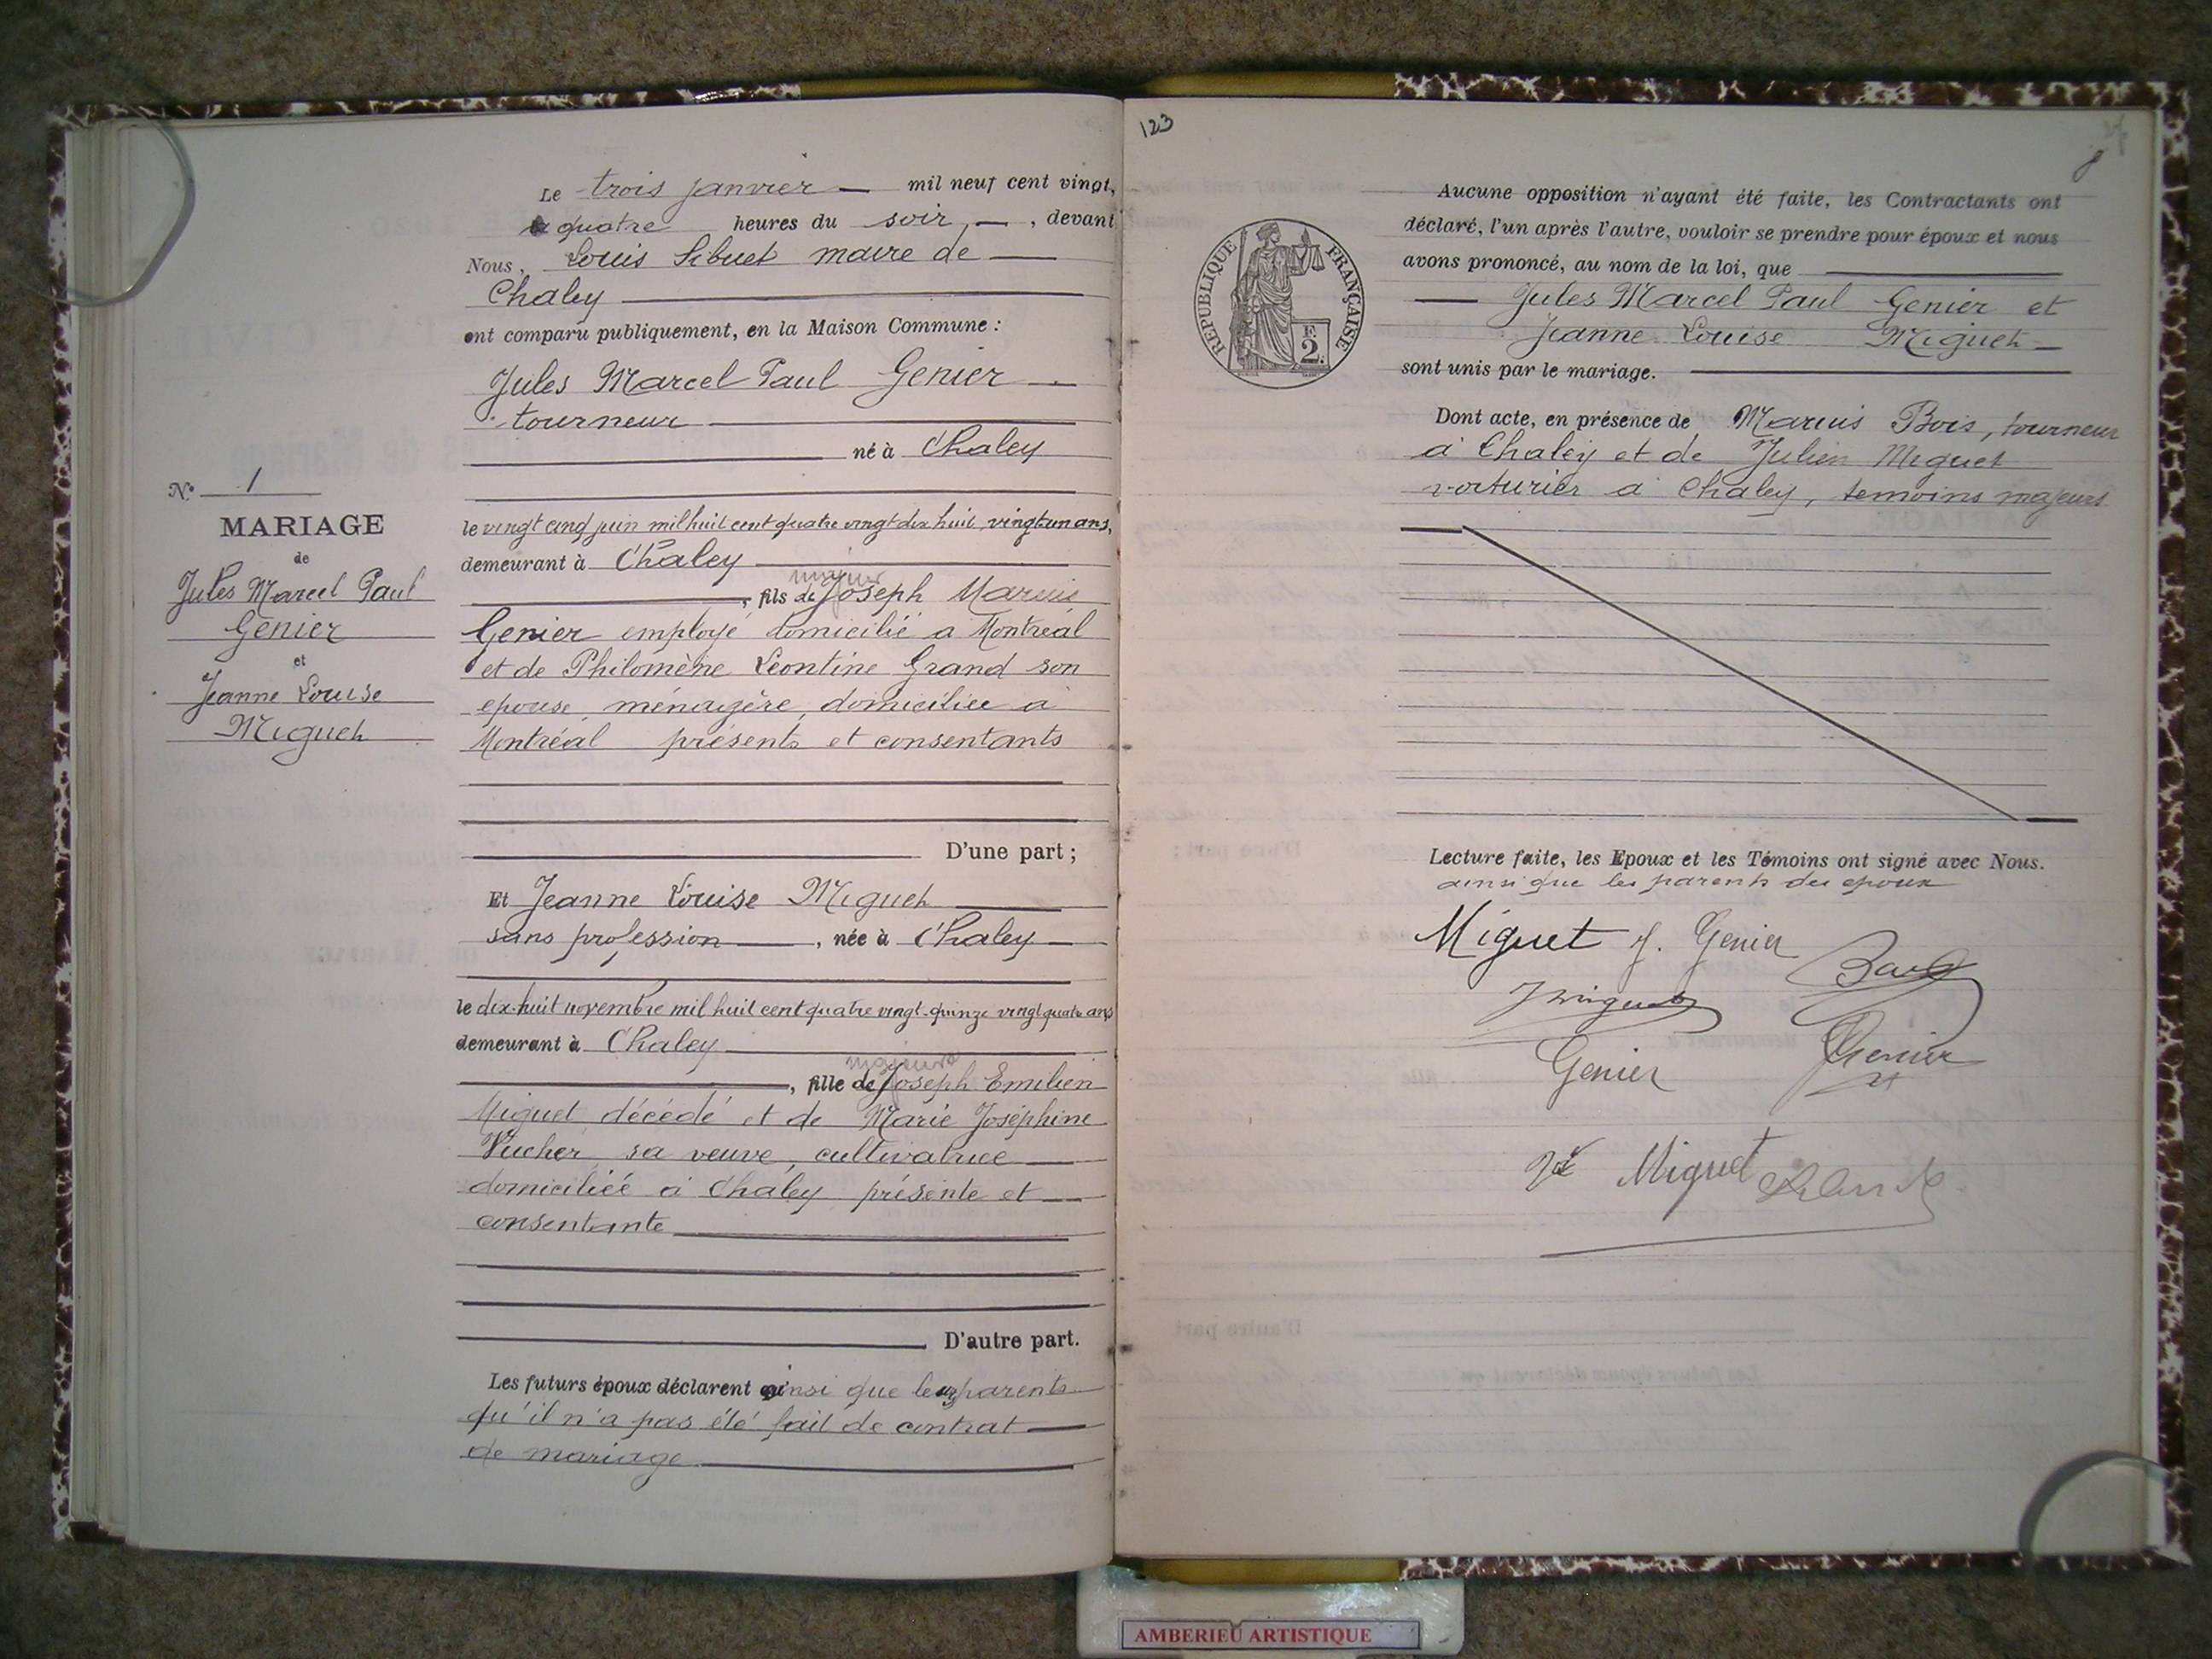 N° 1
MARIAGE
de
Jules Marcel Paul
Genier
et
Jeanne Louise
Miguet
Le trois janvier mil neuf cent vingt,
à quatre heures du soir, , devant
Nous, Louis Sibuet maire de
Chaley
ont comparu publiquement, en la Maison Commune :
Jules Marcel Paul Genier
tourneur
né à Chaley
le vingt cinq juin mil huit cent quatre vingt dix huit, vingt un ans,
demeurant à Chaley
majeur
, fils de Joseph Marius
Genier employé domicilié a Montréal
et de Philomène Leontine Grand son
epouse, ménagère, domiciliée a
Montréal présents et consentants
D'une part ;
Et Jeanne Louise Miguet
sans profession , née à Chaley
le dix-huit novembre mil huit cent quatre vingt-quinze vingt quatre ans
demeurant à Chaley
majeure
, fille de Joseph Emilien
Miguet décédé et de Marie Joséphine
Vucher sa veuve, cultivatrice
domiciliée à Chaley présente et
consentante
D'autre part.
Les futurs époux déclarent ainsi que leurs parents
qu'il n'a pas été fait de contrat
de mariage
123
8
RÉPUBLIQUE FRANÇAISE
2
Aucune opposition n'ayant été faite, les Contractants ont
déclaré, l'un après l'autre, vouloir se prendre pour époux et nous
avons prononcé, au nom de la loi, que
Jules Marcel Paul Genier et
Jeanne Louise Miguet
sont unis par le mariage.
Dont acte, en présence de Marius Bois, tourneur
à Chaley et de Julien Miguet
voiturier a Chaley, temoins majeurs
Lecture faite, les Epoux et les Témoins ont signé avec Nous.
ainsi que les parents des epoux
Miguet J. Genier
J Miguet
Genier Genier
Miguet
AMBERIEU ARTISTIQUE